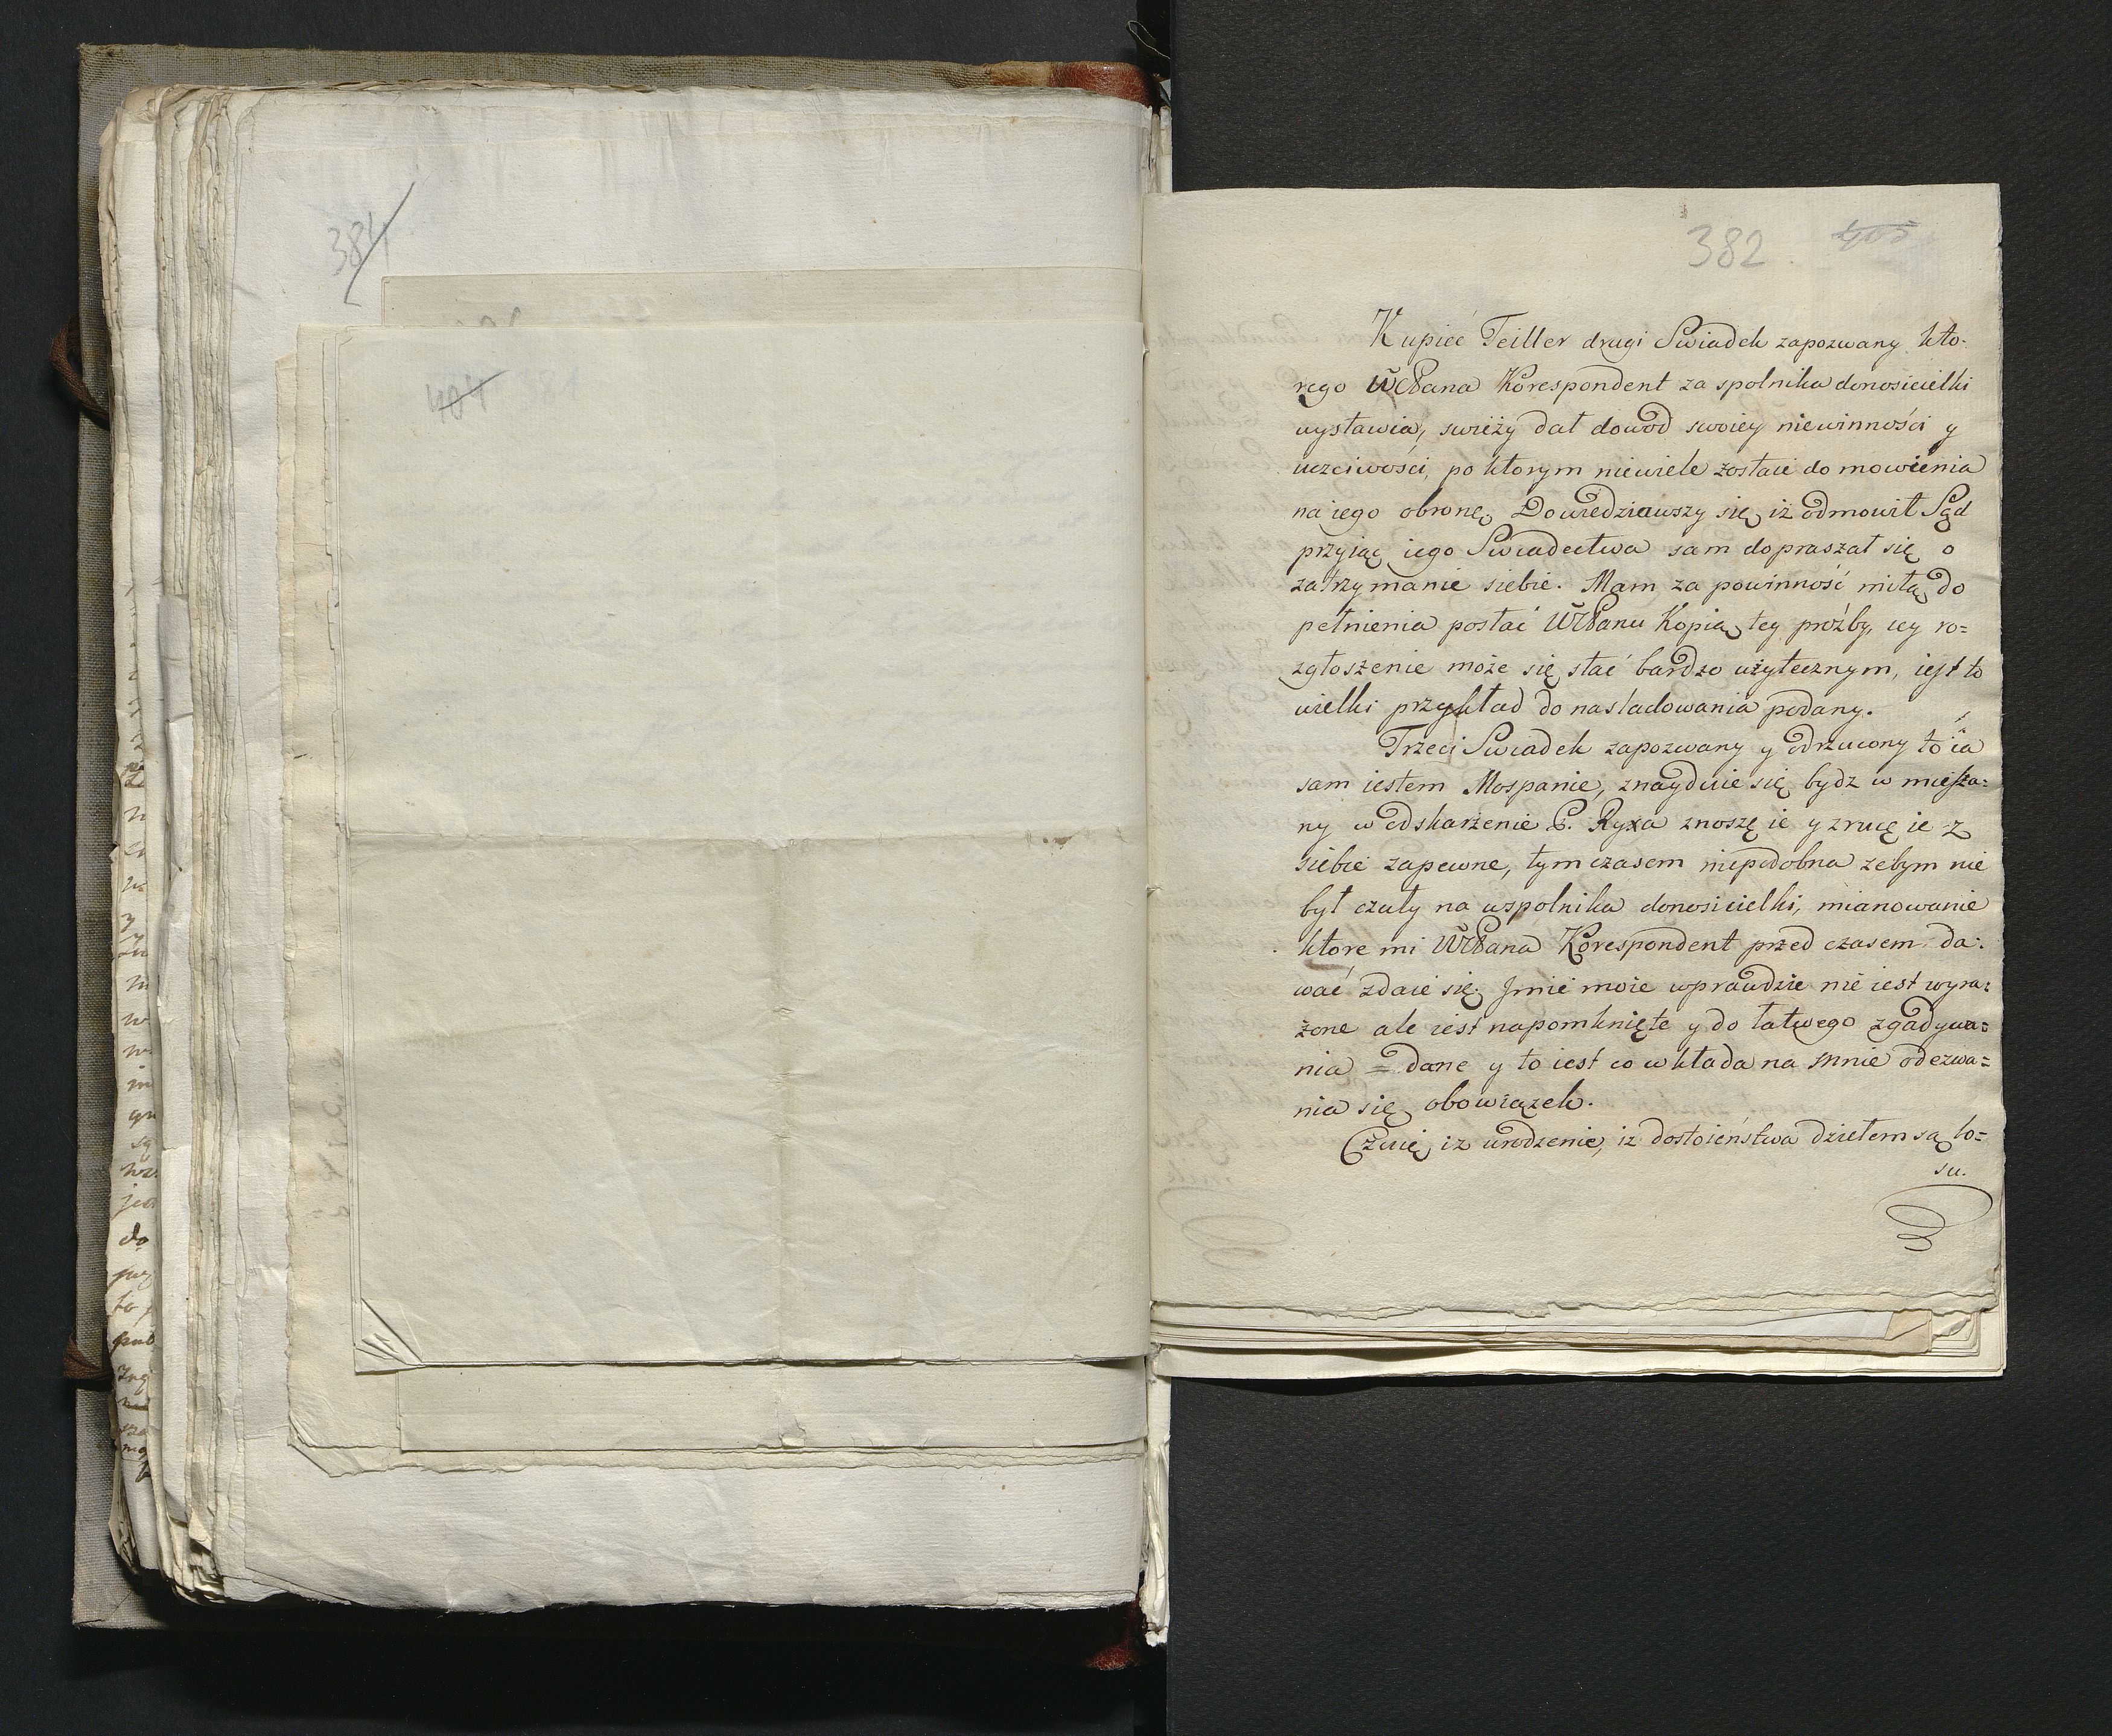 384
401 381
382. 405
Kupieć Teiller drugi Swiadek zapozwany kto-
rego WMPana Korespondent za spolnika donosicielki
wystawia, swieży dał dowod swoiey niewinności y
uczciwości, po ktorym niewiele zostaie do mowienia
na iego obronę. Dowiedziawszy się iż odmowił Sąd
przyiąć iego Swiadectwa sam dopraszał się o
zatrzymanie siebie. Mam za powinność miłą do
pełnienia posłać WMPanu Kopią tey proźby, iey ro=
zgłoszenie może się stać bardzo użytecznym, iest to
wielki przykład do nasladowania podany.
Trzeci Swiadek zapozwany y odrzucony to ia
sam iestem Mospanie, znayduie się bydz w miesza=
ny w oskarżenie P. Ryxa znoszę ie y zrucę ie z
siebie zapewne, tym czasem niepodobna zebym nie
był czuły na wspolnika donosicielki, mianowanie
ktore mi WMPana Korespondent przed czasem da=
wać zdaie się. Imie moie wprawdzie nie iest wyra=
żone ale iest napomknięte y do łatwego zgadywa=
nia = dane y to iest co wkłada na mnie odezwa=
nia się obowiązek.
Czuię, iz urodzenie, iz dostoieństwa dziełem są lo=
su.